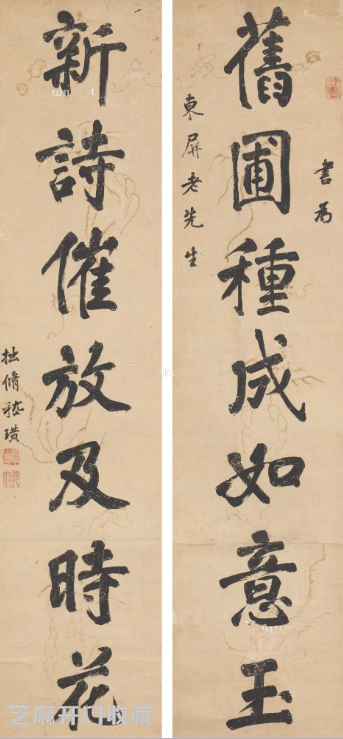 書為
東屏老先生
舊圃種成如意玉
新詩催放及時花
拙脩嵇璜
芝麻开门收藏